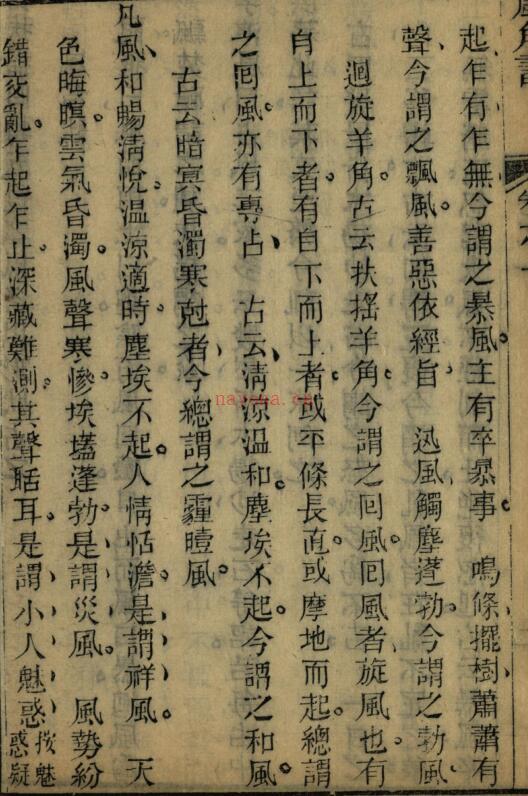 起乍有乍無今謂之暴風主有卒暴事　鳴條擺樹蕭蕭有
聲今謂之飄風善惡依經旨　迅風觸塵蓬勃今謂之勃風
迴旋羊角。古云扶搖羊角今謂之回風。回風者旋風也有
自上而下者有自下而上者或平條長直或摩地而起總謂
之回風亦有專占　古云清涼溫和塵埃不起。今謂之和風
古云暗冥昏濁寒尅者今總謂之霾曀風
凡風和暢清悅溫涼適時塵埃不起人情恬澹是謂祥風。　天
色晦暝雲氣昏濁風聲寒慘埃壒蓬勃。是謂災風　風勢紛
錯交亂。乍起乍止深藏難測其聲聒耳是謂小人魅惑按魅惑疑
nayona.cn